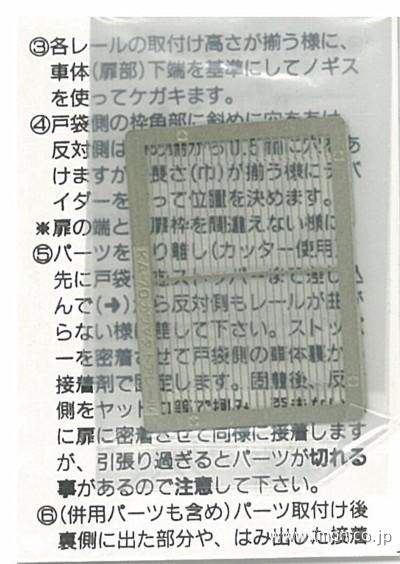 ③各レールの取付け高さが揃う様に、
車体(扉部)下端を基準にしてノギス
を使ってケガキます。
④戸袋側の枠角部に斜めに穴をあけ、
反対側は 0.5mmに穴をあ
けますが 長さ(巾)が揃う様にデバ
イダーを使って位置を決めます。
※扉の端と扉枠を間違えない様に
⑤パーツを切り離し(カッター使用)
先に戸袋 ストッパーまで差し込
んで(➜)から反対側もレールが曲が
らない様に差して下さい。ストッパ
ーを密着させて戸袋側の車体裏か
接着剤で固定します。固着後、反
側をヤット
に扉に密着させて同様に接着します
が、引張り過ぎるとパーツが切れる
事があるので注意して下さい。
⑥(併用パーツも含め)パーツ取付け後
裏側に出た部分や、はみ出した接着